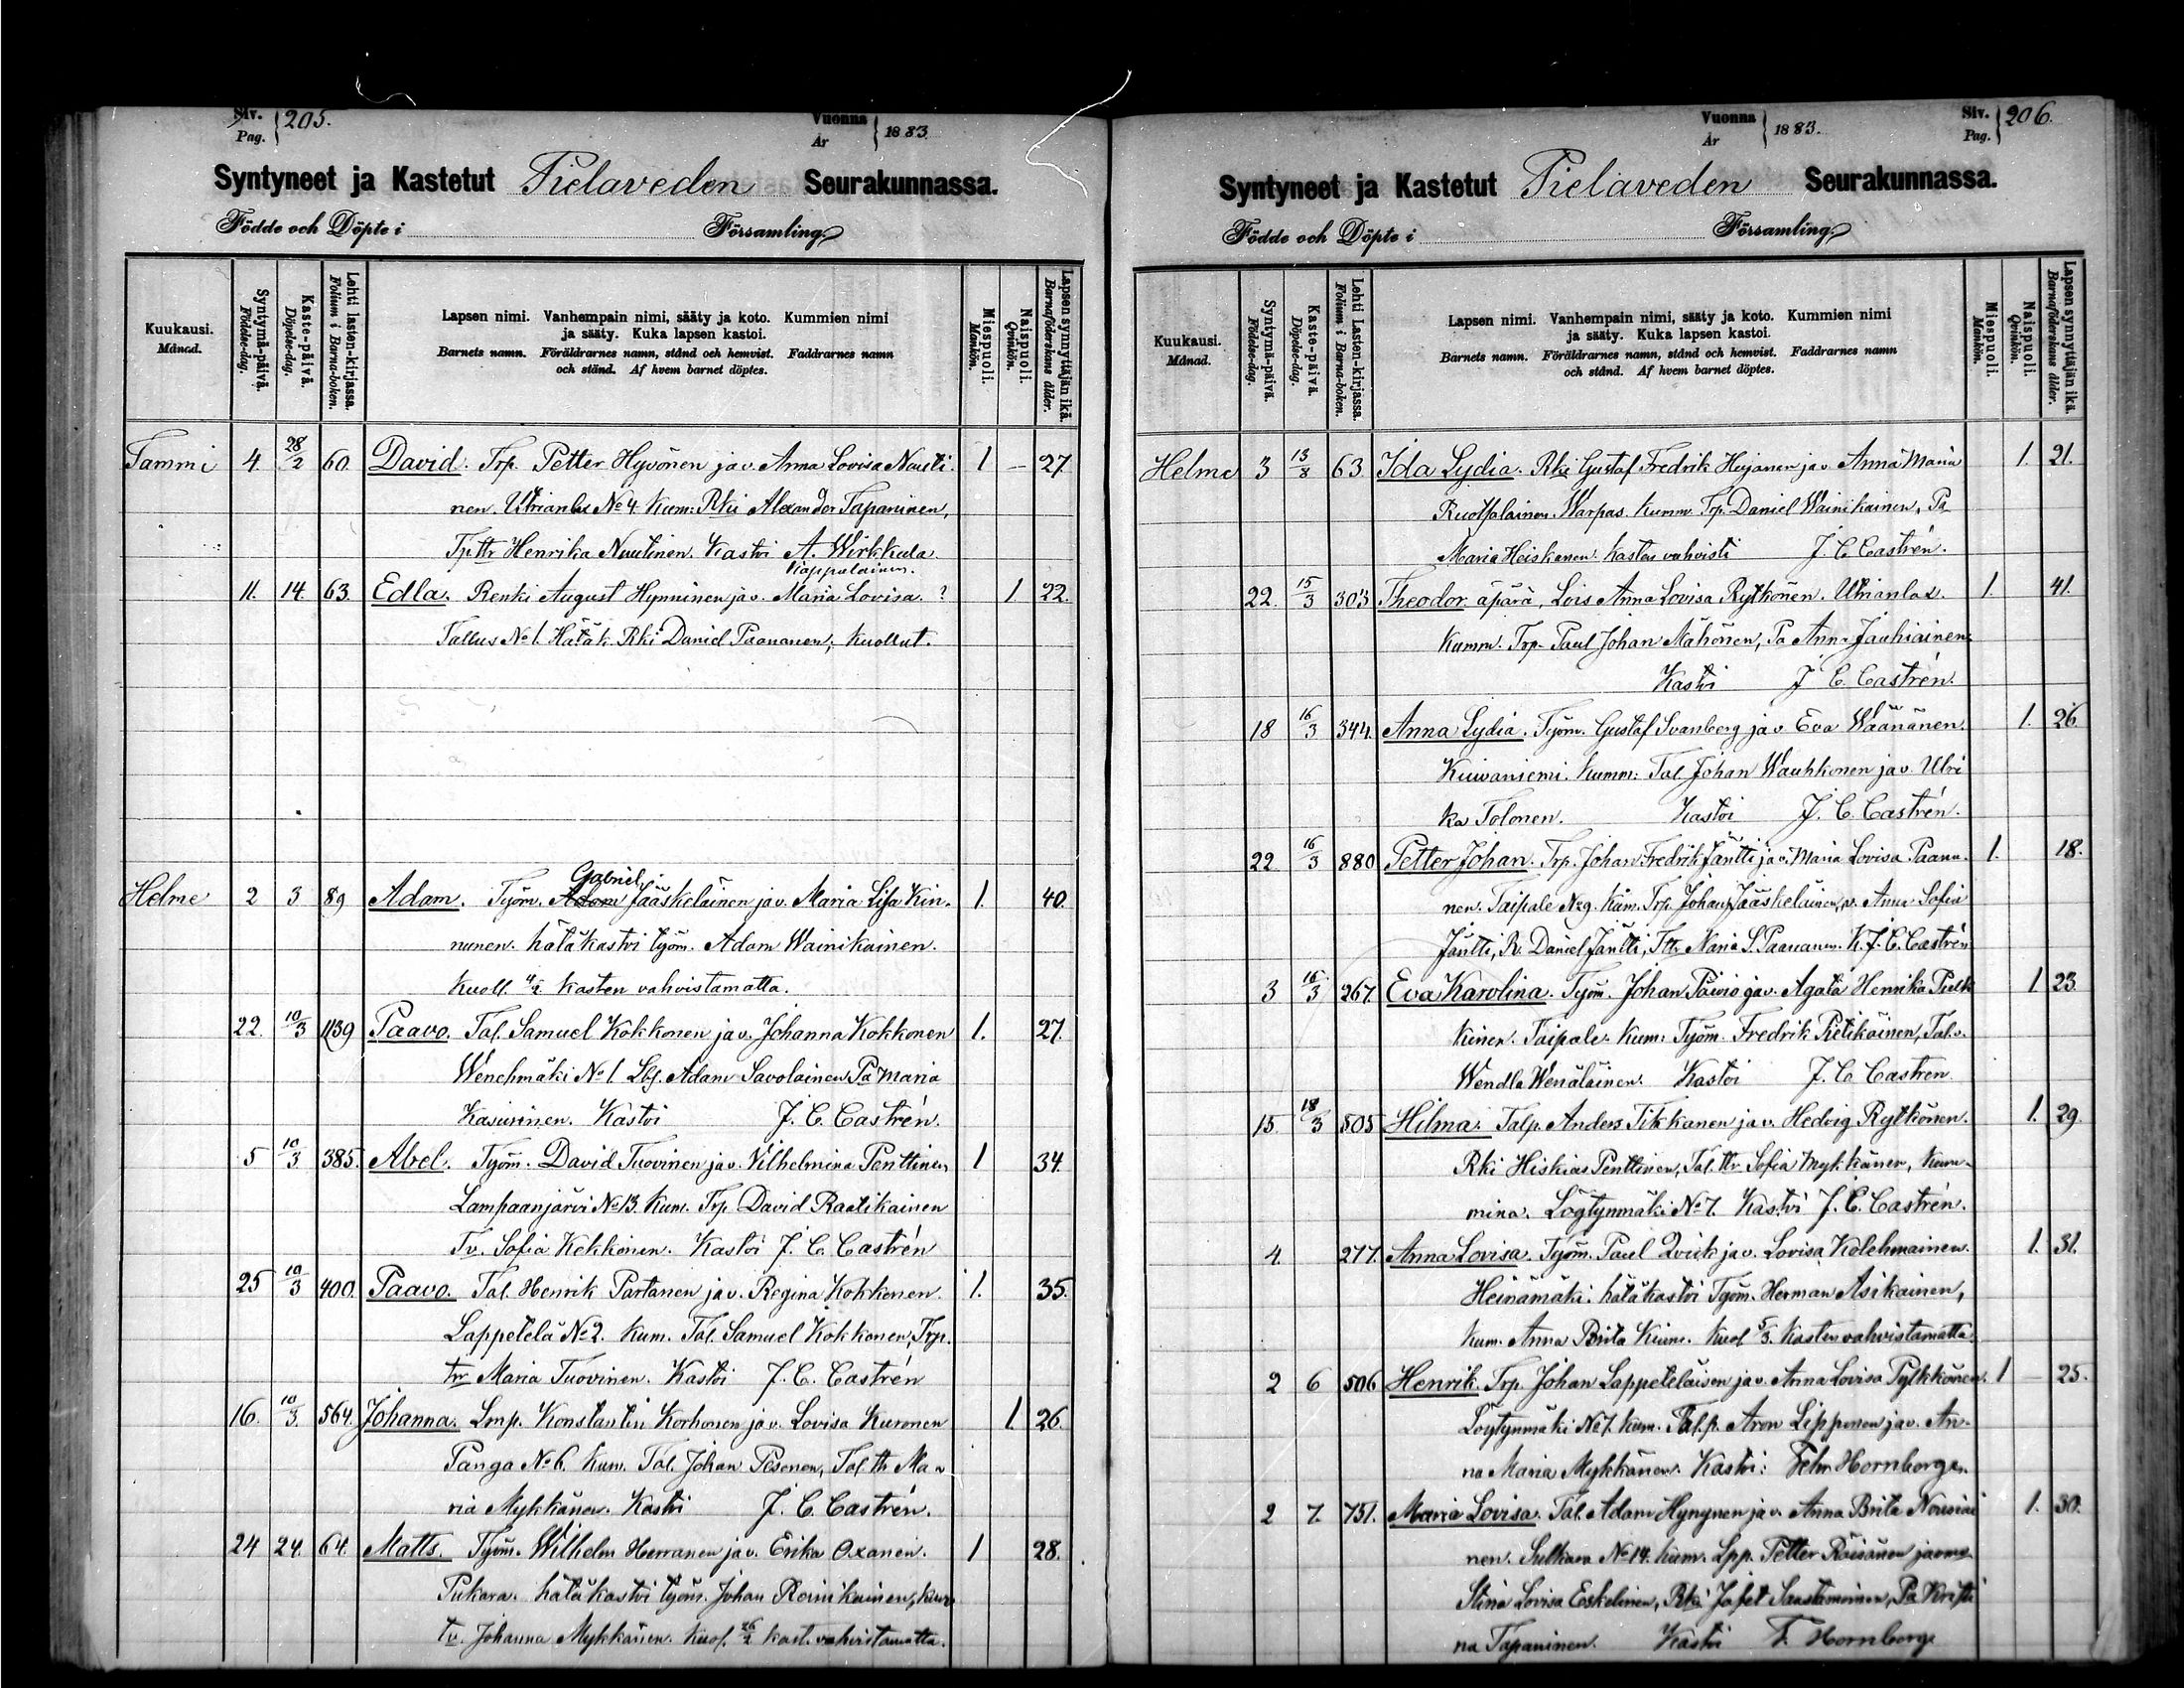 Siv. Pag. 205. Vuonna År 1883.
Syntyneet ja Kastetut Pielaveden Seurakunnassa.
Födde och Döpte i Församling.
Kuukausi. Månad.
Syntymä-päivä. Födelse-dag.
Kaste-päivä. Döpelse-dag.
Lehti lasten-kirjassa. Folium i Barna-boken.
Lapsen nimi. Vanhempain nimi, sääty ja koto. Kummien nimi
ja sääty. Kuka lapsen kastoi.
Barnets namn. Föräldrarnes namn, stånd och hemvist. Faddrarnes namn
och stånd. Af hvem barnet döptes.
Miespuoli. Mankön.
Naispuoli. Qvinkön.
Lapsen synnyttäjän ikä. Barnaföderskans ålder.
Tammi 4. 28/2 60. David. Trp. Petter Hyvönen ja v. Anna Lovisa Nuuti- 1 – 27.
nen. No 4. Kum: Rki Alexander Tapaninen,
Tp ttr Henrika Nuutinen. Kastoi A. Wirkkula.
Kappalainen.
11. 14. 63. Edla. Renki August Hynninen ja v. Maria Lovisa ? 1 22.
Tallus No 1. Hätäk. Rki Daniel Paananen, Kuollut.
Helme 2 3 89 Adam. Työm. Adam Gabriel Jääskeläinen ja v. Maria Lisa Kin- 1. 40.
nunen. hätäkastoi työm. Adam Wainikainen.
Kuoll. 4/2 kasten vahvistamatta.
22. 10/3 1139 Paavo. Tal. Samuel Kokkonen ja v. Johanna Kokkonen 1. 27.
Wenehmäki No 1. Lbj. Adam Savolainen, Pa Maria
Kasurinen. Kastoi J. C. Castrén.
5 10/3 385. Abel. Työm. David Tuovinen ja v. Vilhelmina Penttinen 1 34.
Lampaanjärvi No 13. Kum. Trp. David Raatikainen
Tv. Sofia Kekkonen. Kastoi J. C. Castrén
25 10/3 400. Paavo. Tal. Henrik Partanen ja v. Regina Kokkonen. 1. 35.
Lappetelä No 2. Kum. Tal. Samuel Kokkonen, Trp.
ttr Maria Tuovinen. Kastoi J. C. Castrén
16. 10/3 564. Johanna. Lmp. Konstantin Korhonen ja v. Lovisa Kuronen 1. 26.
Panga No 6. Kum. Tal. Johan Pesonen, Tal. ttr Ma-
ria Mykkänen. Kastoi J. C. Castrén.
24 24. 64. Matts. Työm. Wilhelm Herranen ja v. Erika Oxanen. 1 28.
Pukara. hätäkastoi työm. Johan Roinikainen, kum
tv. Johanna Mykkänen. Kuol. 26/2 kast. vahvistamatta.
Vuonna År 1883. Siv. Pag. 206.
Syntyneet ja Kastetut Pielaveden Seurakunnassa.
Födde och Döpte i Församling.
Kuukausi. Månad.
Syntymä-päivä. Födelse-dag.
Kaste-päivä. Döpelse-dag.
Lehti Lasten-kirjassa. Folium i Barna-boken.
Lapsen nimi. Vanhempain nimi, sääty ja koto. Kummien nimi
ja sääty. Kuka lapsen kastoi.
Barnets namn. Föräldrarnes namn, stånd och hemvist. Faddrarnes namn
och stånd. Af hvem barnet döptes.
Miespuoli. Mankön.
Naispuoli. Qvinkön.
Lapsen synnyttäjän ikä. Barnaföderskans ålder.
Helme 3 13/8 63. Ida Lydia. Rki Gustaf Fredrik ja v. Anna Maria 1. 21.
Ruotsalainen. Warpas. Kumm. Trp. Daniel Wainikainen, Pa
Maria Heiskanen. Kasten vahvisti J. C. Castrén.
22. 15/3 303 Theodor. äpärä, Lois Anna Lovisa Rytkönen. 1. 41.
Kumm. Trp. Paul Johan Mähönen, Pa Anna Jauhiainen.
Kastoi J. C. Castrén.
18 16/3 344. Anna Lydia. Työm. Gustaf Svanberg ja v. Eva Wäänänen. 1. 26
Kuivaniemi. Kumm: Tal. Johan Wauhkonen ja v. Ulri
ka Tolonen. Kastoi J. C. Castrén.
22. 16/3 880 Petter Johan. Trp. Johan Fredrik Jäntti ja v. Maria Lovisa Paana- 1. 18.
nen. Taipale No 9. Kum. Trp. Johan Jääskeläinen, v. Anna Sofia
Jäntti, R. Daniel Jäntti, Ttr Maria L. Paananen. K. J. C. Castrén
3 16/3 267. Eva Karolina. Työm. Johan Päiviö ja v. Agata Henrika 1 23.
kinen. Taipale. Kum: Työm. Fredrik Pietikäinen, Tal. v.
Wendla Wenäläinen. Kastoi J. C. Castrén.
15. 18/3 505 Hilma. Talp. Anders Tikkanen ja v. Hedvig Rytkönen. 1. 29.
Rki Hiskias Penttinen, Tal. ttr Sofia Mykkänen, kum-
mina. Löytynmäki No 7. Kastoi J. C. Castrén.
4. 277. Anna Lovisa. Työm. Paul Qvick ja v. Lovisa Kolehmainen. 1. 31.
Heinämäki. hätäkastoi Työm. Herman Asikainen,
Kum. Anna Brita Kum. Kuol 5/3. Kasten vahvistamatta.
2 6 506 Henrik. Trp. Johan Lappeteläisen ja v. Anna Lovisa Pylkkönen. 1 – 25.
Löytynmäki No 7. Kum. Tal.p. Aron Lipponen ja v. An-
na Maria Mykkänen. Kastoi: Hornborg.
2 7. 751. Maria Lovisa. Tal. Adam Hyngnen ja v. Anna Brita Nousiai 1. 30.
nen. Sulkava No 14. Kum. Lpp. Petter Räisänen ja
Stina Lovisa Eskelinen, Rki Jafet Saastamoinen, Pa Kristi
na Tapaninen. Kastoi F. Hornborg